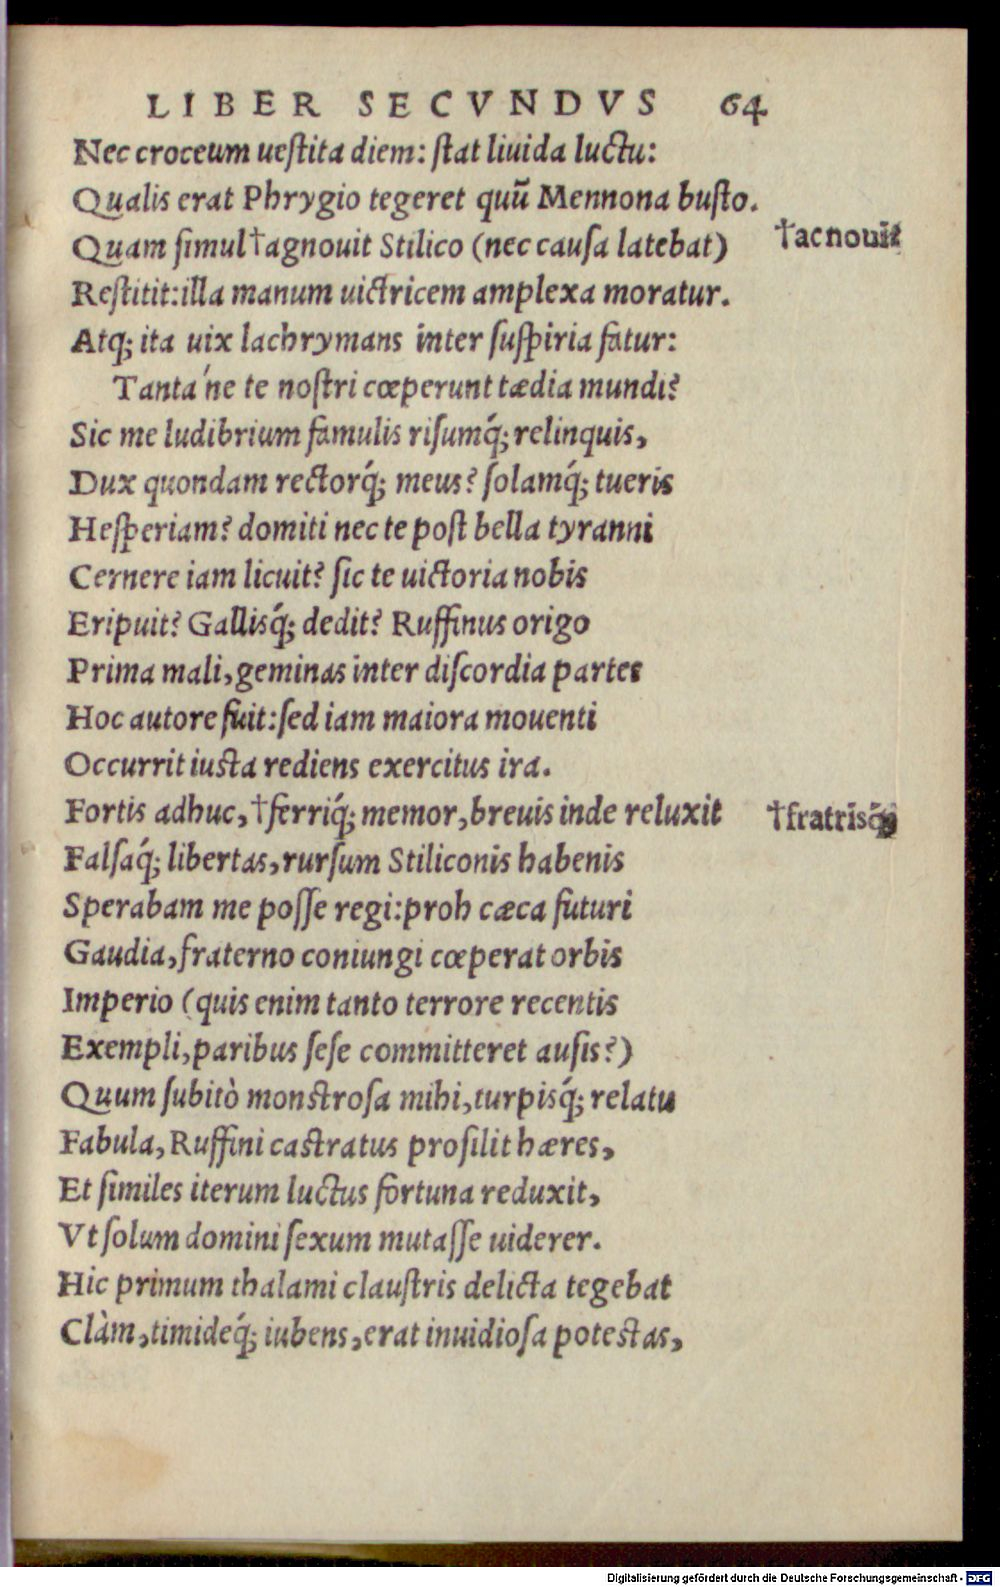 LIBER SECVNDVS 64
Nec croceum uestita diem: stat liuida luctu:
Qualis erat Phrygio tegeret quũ Mennona busto.
Quam simul†agnouit Stilico (nec causa latebat) †acnouit
Restitit:illa manum uictricem amplexa moratur.
Atq; ita uix lachrymans inter suspiria fatur:
Tanta'ne te nostri cœperunt tædia mundi?
Sic me ludibrium famulis risumq́; relinquis,
Dux quondam rectorq́; meus? solamq́; tueris
Hesperiam? domiti nec te post bella tyranni
Cernere iam licuit? sic te uictoria nobis
Eripuit? Gallisq́; dedit? Ruffinus origo
Prima mali, geminas inter discordia partes
Hoc autore fuit:sed iam maiora mouenti
Occurrit iusta rediens exercitus ira.
Fortis adhuc, †ferriq́; memor, breuis inde reluxit †fratrisq́;
Falsaq́; libertas, rursum Stiliconis habenis
Sperabam me posse regi:proh cæca futuri
Gaudia, fraterno coniungi cœperat orbis
Imperio (quis enim tanto terrore recentis
Exempli, paribus sese committeret ausis?)
Quum subitò monstrosa mihi, turpisq́; relatu
Fabula, Ruffini castratus prosilit hæres,
Et similes iterum luctus fortuna reduxit,
Vt solum domini sexum mutasse uiderer.
Hic primum thalami claustris delicta tegebat
Clàm, timideq́; iubens, erat inuidiosa potestas,
Digitalisierung gefördert durch die Deutsche Forschungsgemeinschaft - DFG